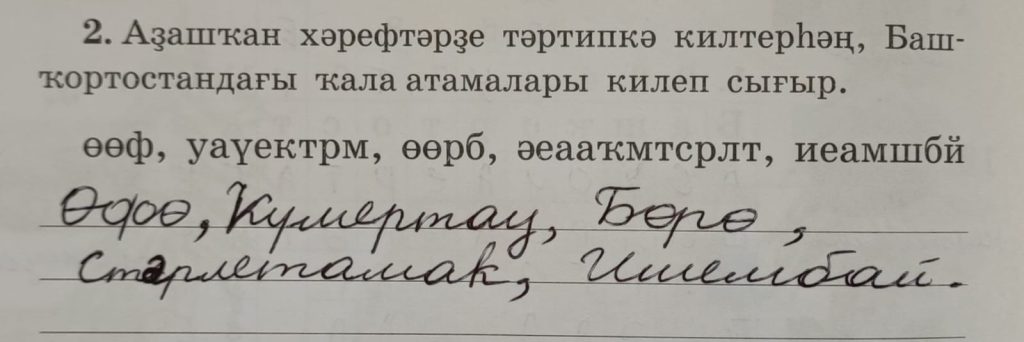 2. Аҙашҡан хәрефтәрҙе тәртипкә килтерһәң, Баш-
ҡортостандағы ҡала атамалары килеп сығыр.
өөф, уаүектрм, өөрб, әеааҡмтсрлт, иеамшбй
Өфө, Күмертау, Бөрө,
Стәрлетамак, Ишембай.